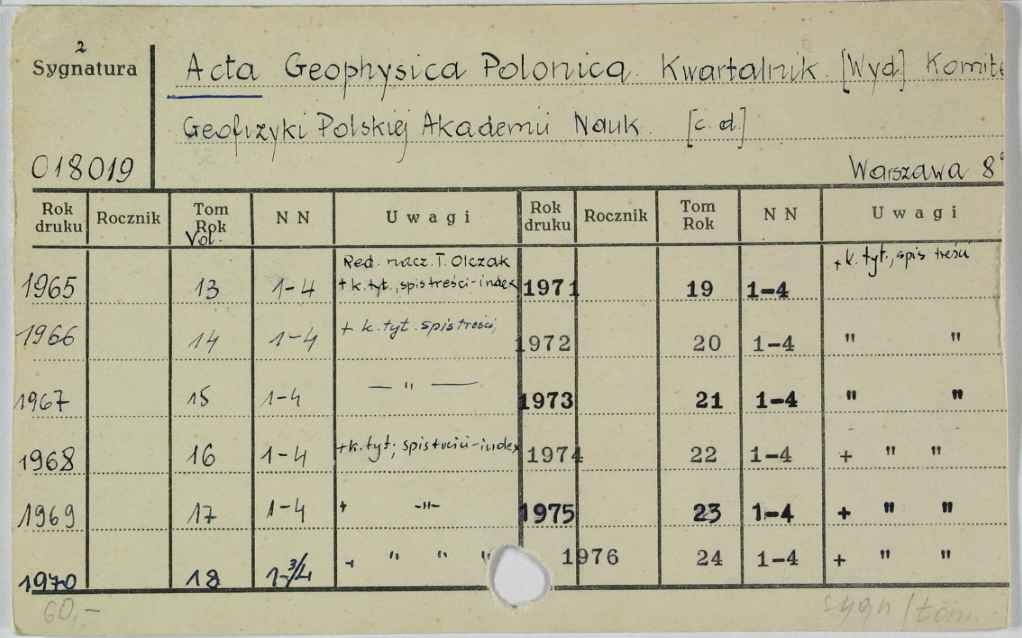 2
Sygnatura
Acta Geophysica Polonica. Kwartalnik. [Wyd] Komite
Geofizyki Polskiej Akademii Nauk. [c. d.]
018019
Warszawa 8°
Rok druku Rocznik Tom Rok Vol. N N Uwagi Rok druku Rocznik Tom Rok N N Uwagi
1965 13 1-4 Red. nacz. T. Olczak + k. tyt., spis treści-index 1971 19 1-4 + k. tyt., spis treści
1966 14 1-4 + k. tyt. spis treści 1972 20 1-4 " "
1967 15 1-4 — " — 1973 21 1-4 " "
1968 16 1-4 + k. tyt; spis treści-index 1974 22 1-4 + " "
1969 17 1-4 + -"- 1975 23 1-4 + " "
1970 18 1-3/4 + " " " 1976 24 1-4 + " "
60,- sygn/tom.